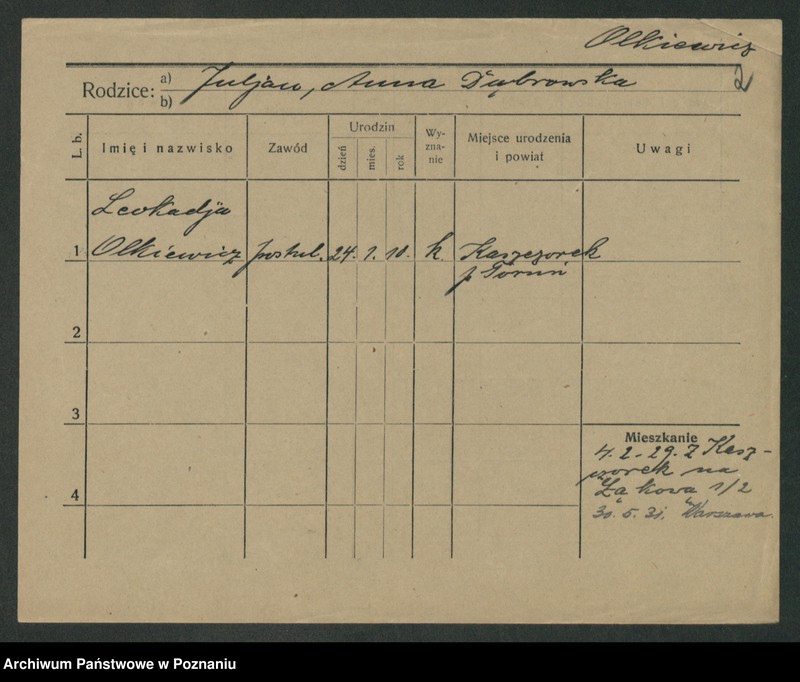 Olkiewicz
2
Rodzice: a) Juljan, Anna Dąbrowska
b)
L. b.
Imię i nazwisko
Zawód
Urodzin
dzień
mies.
rok
Wy-
zna-
nie
Miejsce urodzenia
i powiat
Uwagi
Leokadja
1 Olkiewicz postul. 24. 1. 10. k. Kaszczorek
p Toruń
2
3
4
Mieszkanie
4.2.29. z Kasz-
czorek na
Łąkowa 1/2
30.5.31. Warszawa.
Archiwum Państwowe w Poznaniu